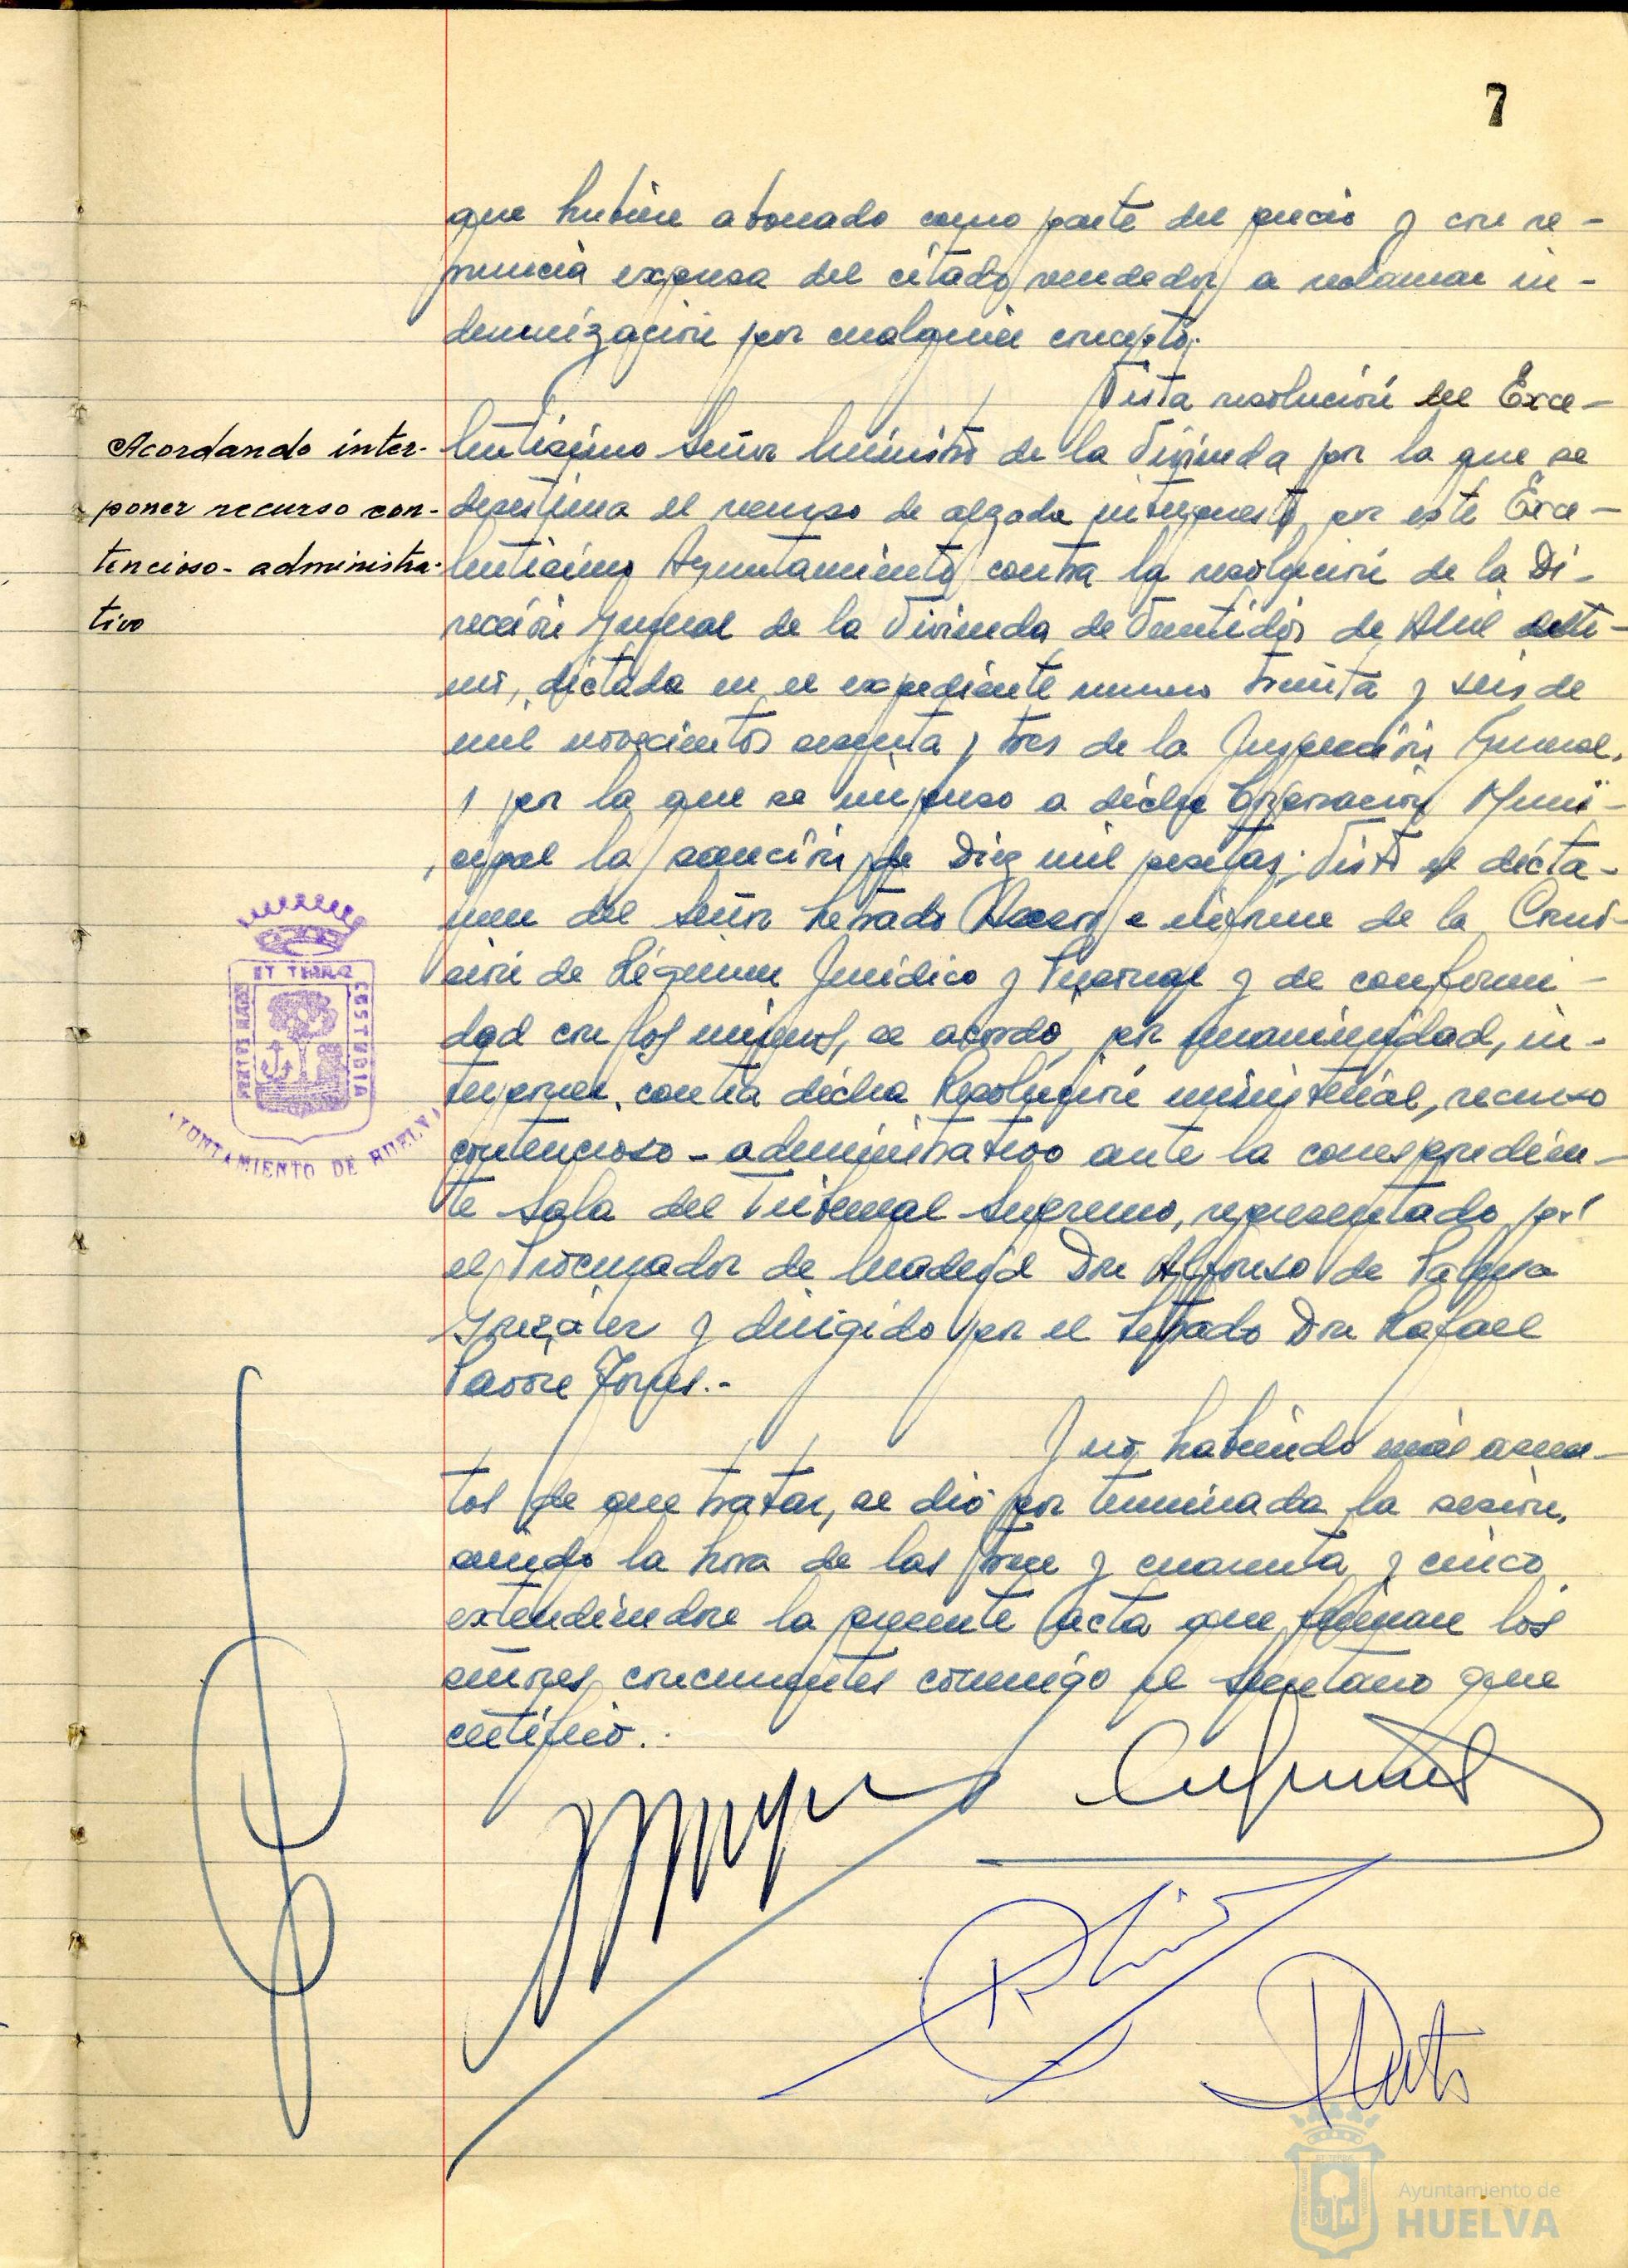 7
que hubiere abonado como parte del precio y con re-
nuncia expresa del citado vendedor a reclamar in-
demnización por cualquier concepto.
Vista resolución del Exce-
Acordando inter-
poner recurso con-
tencioso-administra-
tivo
lentísimo Señor Ministro de la Vivienda por la que se
desestima el recurso de alzada interpuesto por este Exce-
lentísimo Ayuntamiento contra la resolución de la Di-
rección General de la Vivienda de Veintidós de Abril últi-
mo, dictada en el expediente numero treinta y seis de
mil novecientos sesenta y tres de la Inspección General,
y por la que se impuso a dicha Corporación Muni-
cipal la sanción de Diez mil pesetas; Visto el dicta-
men del Señor Letrado Asesor e informe de la Comi-
sión de Régimen Jurídico y Personal y de conformi-
dad con los mismos, se acordo, por unanimidad, in-
terponer, contra dicha Resolución ministerial, recurso
contencioso-administrativo ante la correspondien-
te Sala del Tribunal Supremo, representado por
el Procurador de Madrid Don Alfonso de Palma
González y dirigido por el Letrado Don Rafael
Y no habiendo más asun-
tos de que tratar, se dió por terminada la sesión,
siendo la hora de las trece y cuarenta y cinco,
extendiendose la presente acta que firman los
señores concurrentes conmigo el Secretario que
certifico.
ET TERRAE
CUSTODIA
PORTUS MARIS
AYUNTAMIENTO DE HUELVA
Ayuntamiento de
HUELVA